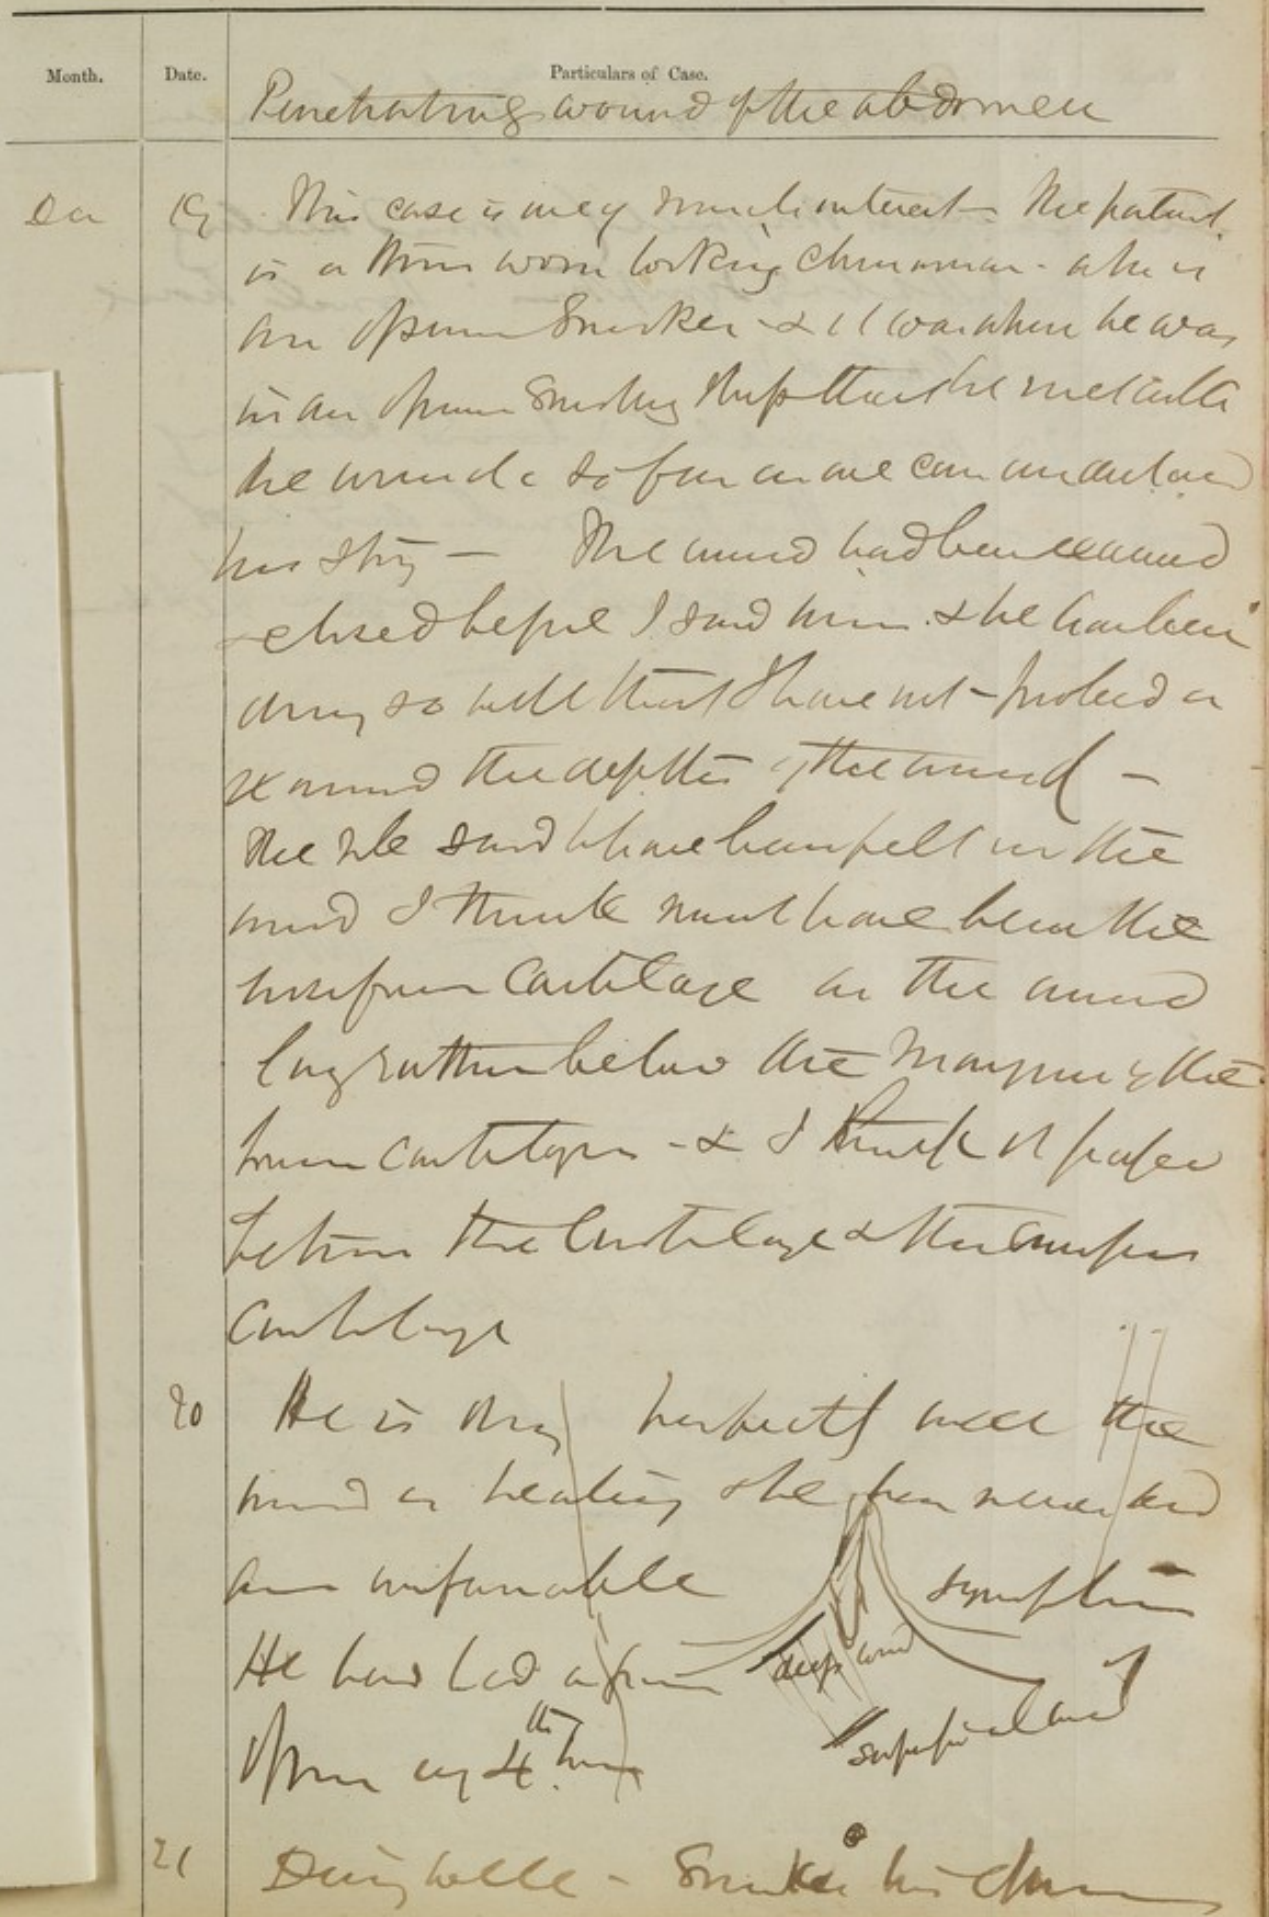 Month. Date. Particulars of Case.
Penetrating wound of the abdomen
Dec 19 This case is one of much interest - The patient
is a thin worn looking Chinaman - who is
an opium Smoker - & it was when he was
in an opium Smoking Shop that he met with
the wound so far as one can understand
his story - The wound had been examined
& closed before I saw him & he has been
doing so well that I have not probed or
examined the depths of the wound -
The rib said to have been felt in the
wound I think must have been the
ensiform Cartilage as the wound
lay rather below the Margin of the
cartilages - & I think it passed
between the Cartilage & the ensiform
Cartilage
20 He is doing perfectly well the
wound is healing & he has never had
an unfavourable symptom
He has had a grain
opium every 4th hour
deep wound
superficial wound
21 Doing well - Smokes his